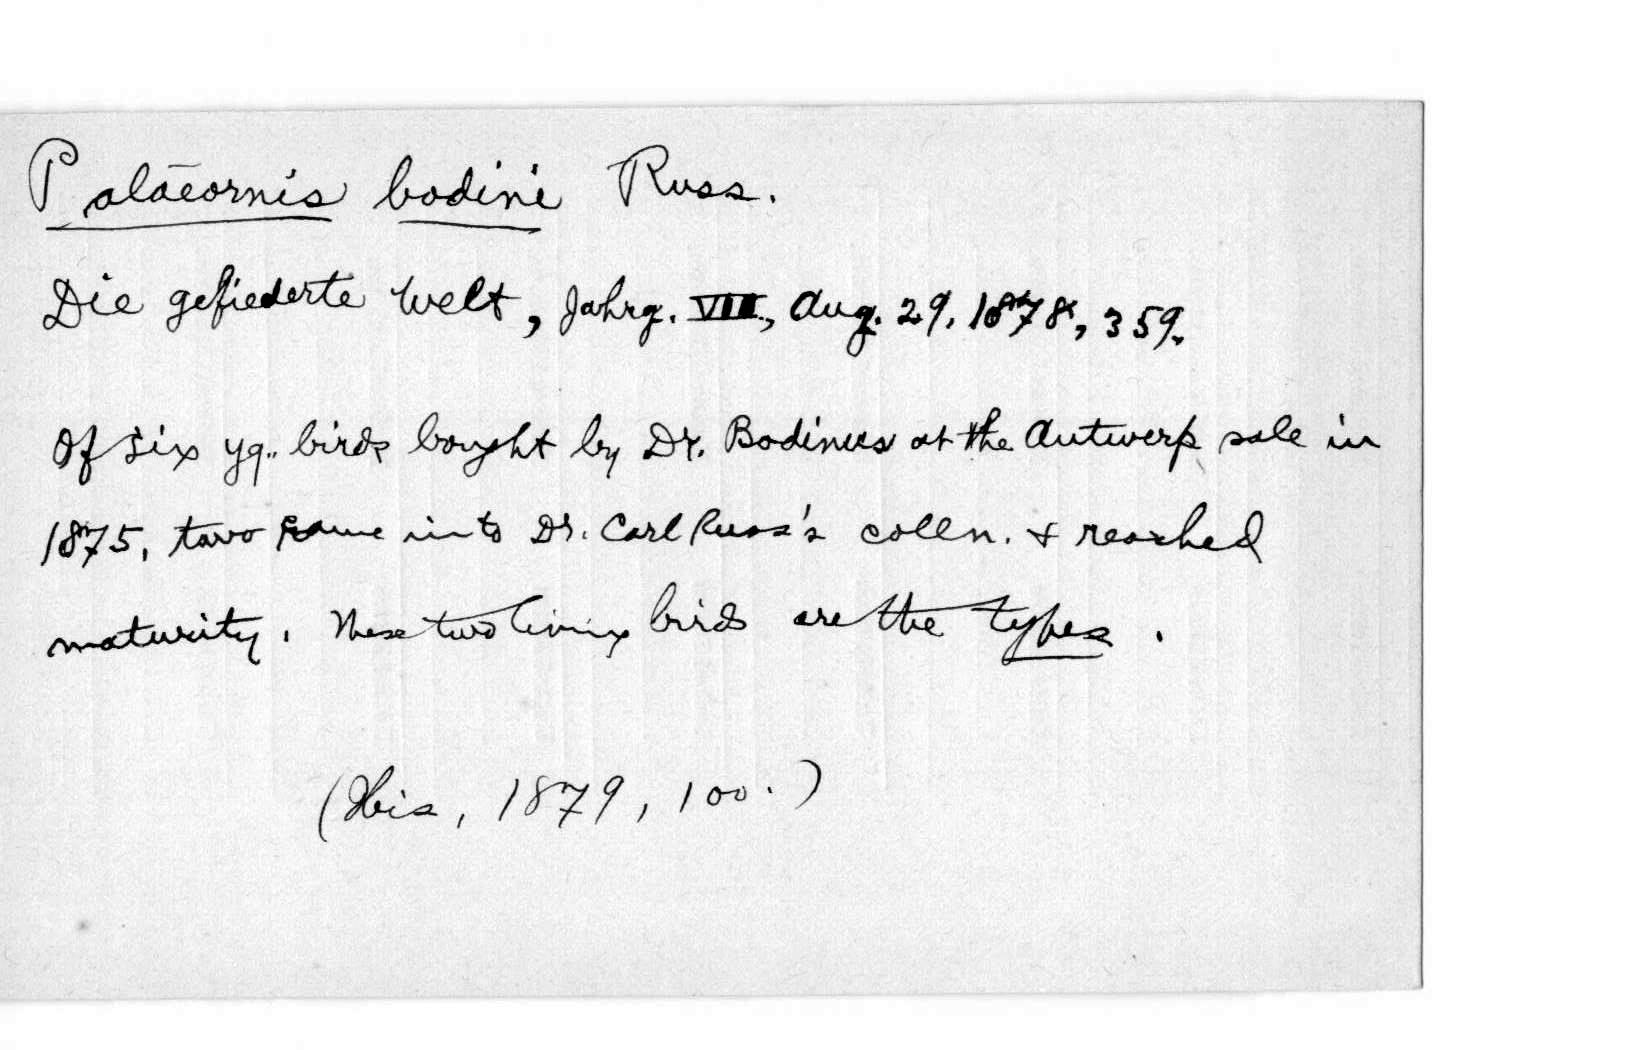 Palāeornis bodini Russ.
Die gefiederte Welt, Jahrg. VII., Aug. 29, 1878, 359.
Of six yg. birds bought by Dr. Bodinus at the Antwerp sale in
1875, two came into Dr. Carl Russ's colln. & reached
maturity. These two living birds are the types.
(Ibis, 1879, 100.)